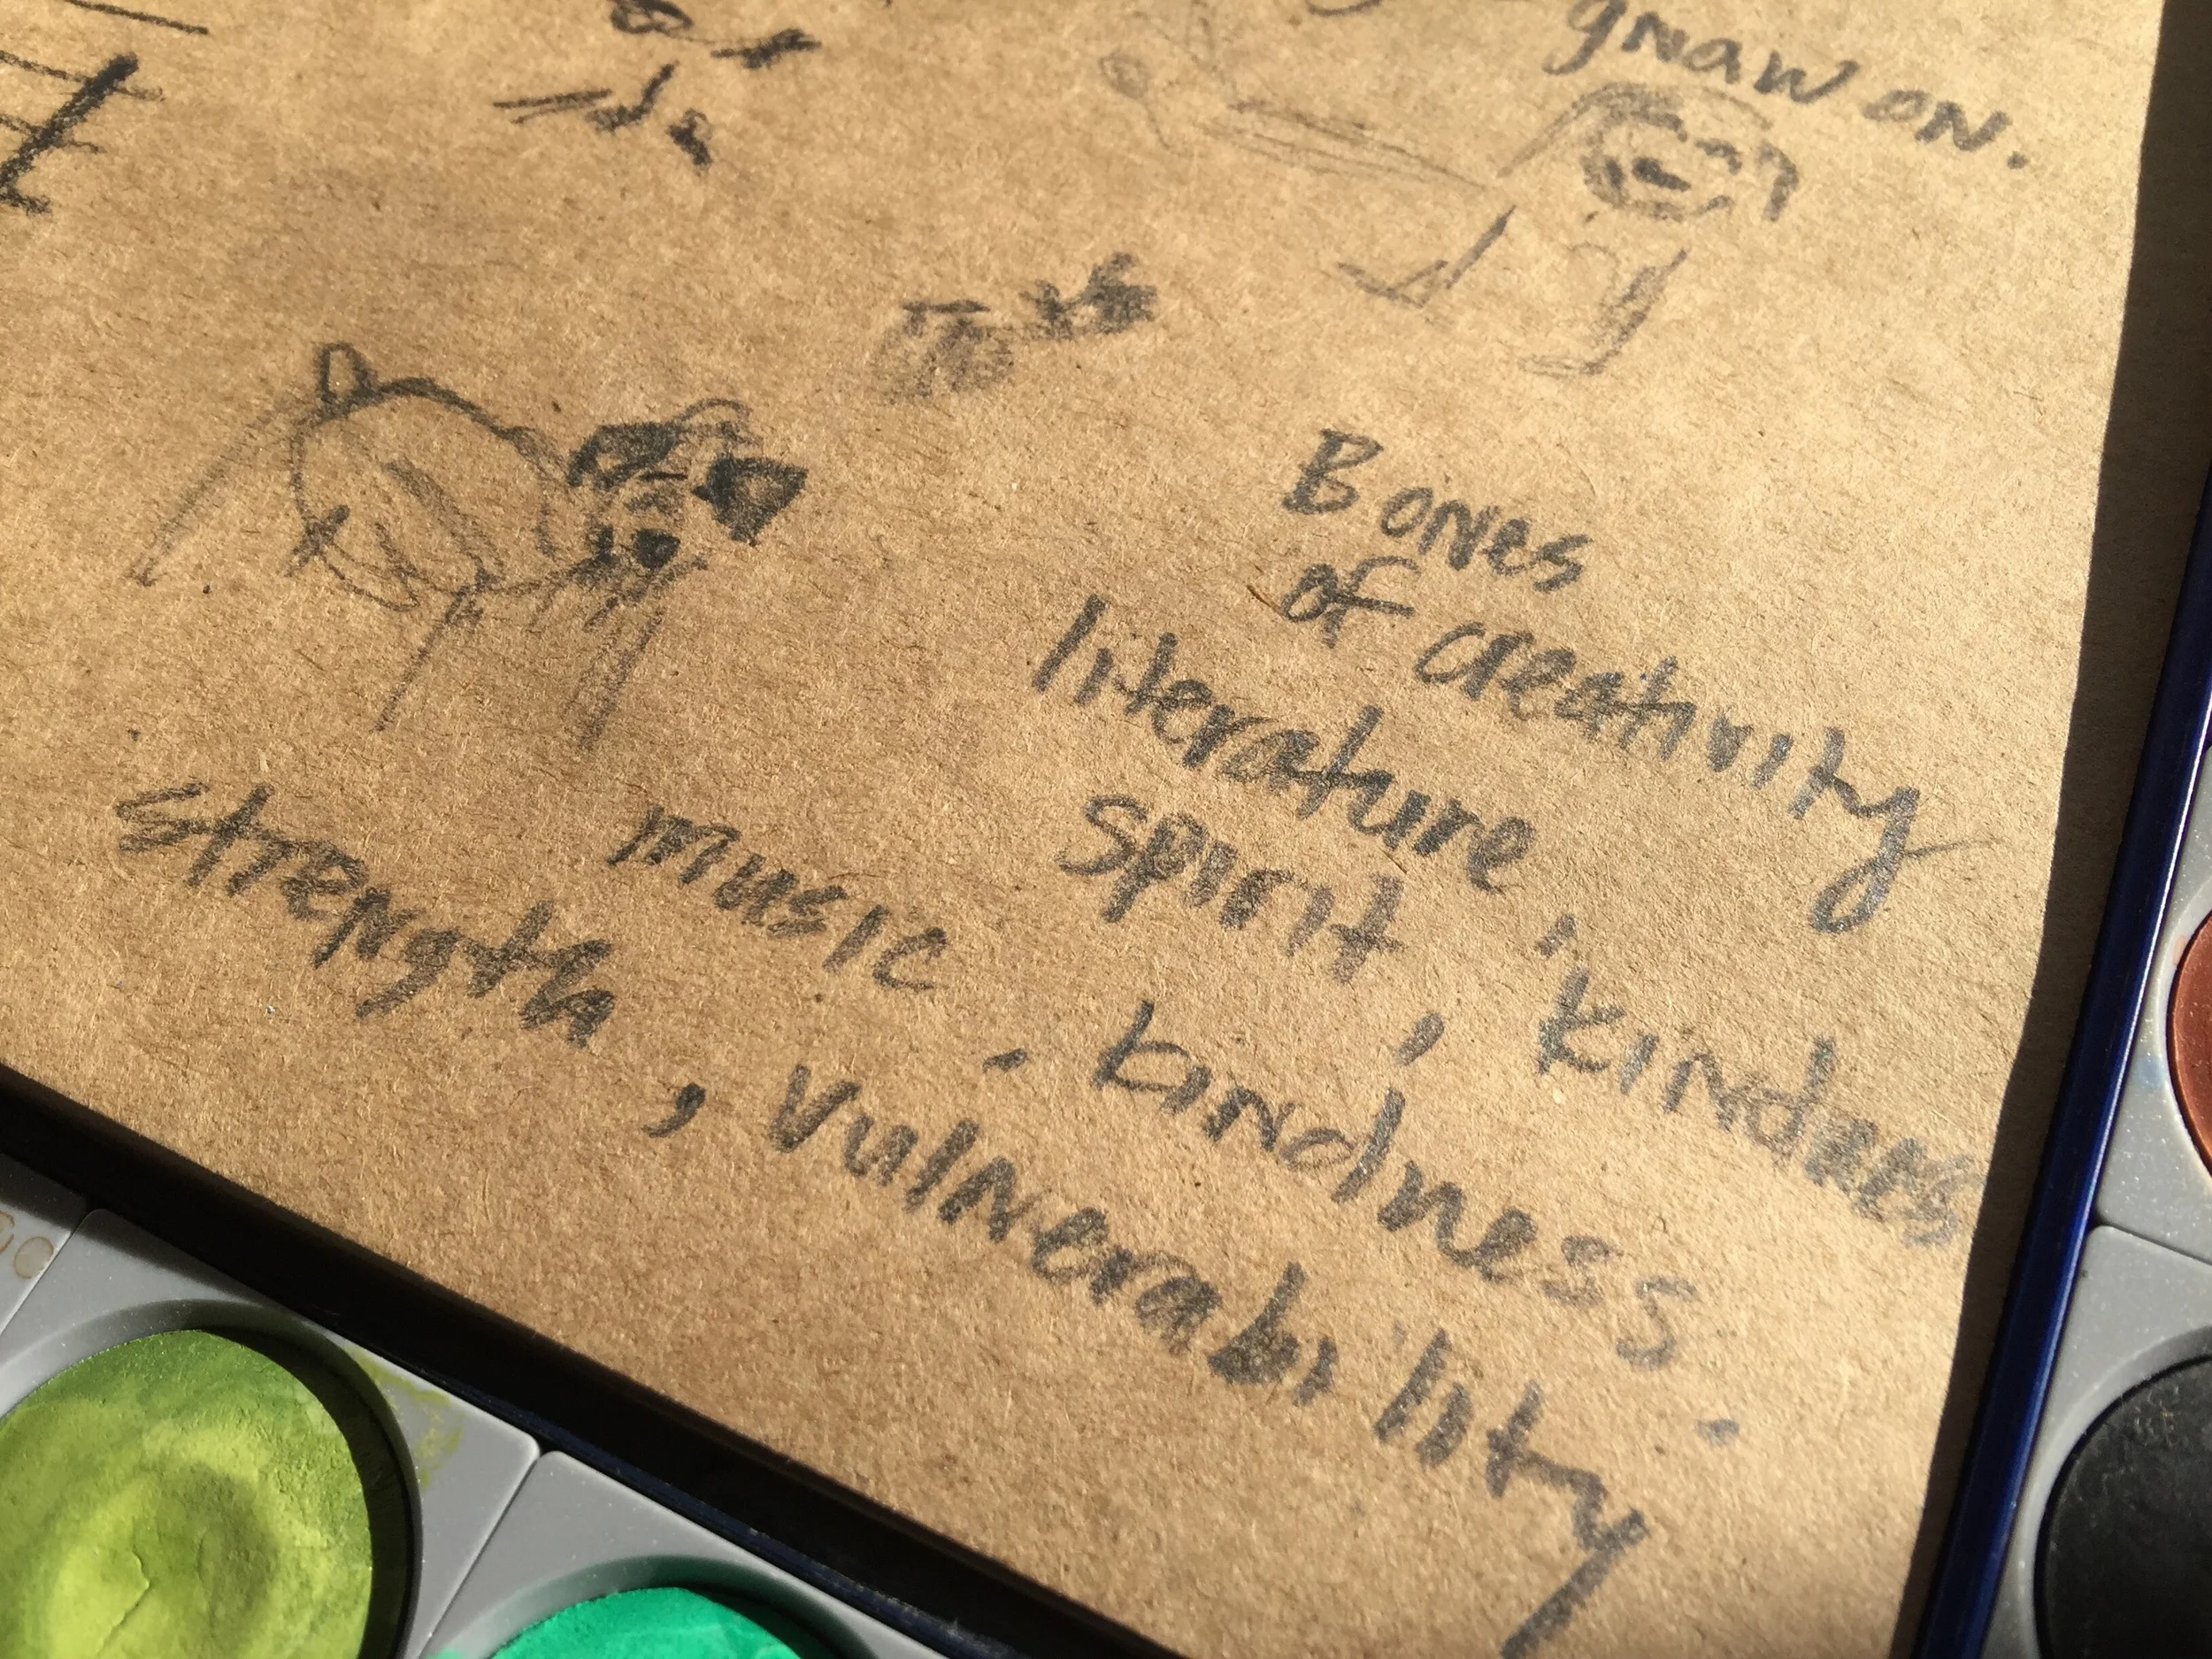 gnaw on.
Bones
of creativity
literature, kindness
spirit,
music. kindness.
strength, vulnerability